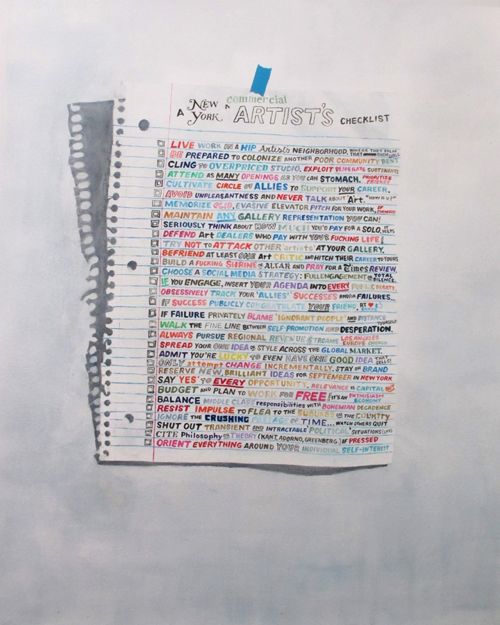 A NEW YORK ^ commercial ARTIST'S CHECKLIST
LIVE WORK OR A HIP Artists NEIGHBORHOOD,
BE PREPARED TO COLONIZE ANOTHER POOR COMMUNITY
CLING TO OVERPRICED STUDIO, EXPLOIT DESPERATE
ATTEND AS MANY OPENINGS AS YOU CAN STOMACH.
CULTIVATE CIRCLE OF ALLIES TO SUPPORT YOUR CAREER.
AVOID UNPLEASANTNESS AND NEVER TALK ABOUT Art.
MEMORIZE EVASIVE ELEVATOR PITCH FOR YOUR WORK,
MAINTAIN ANY GALLERY REPRESENTATION YOU CAN!
SERIOUSLY THINK ABOUT HOW MUCH YOU'D PAY FOR A SOLO,
DEFEND Art DEALERS WHO PAY WITH YOUR FUCKING LIFE!
TRY NOT TO ATTACK OTHER artists AT YOUR GALLERY.
BEFRIEND AT LEAST ONE Art CRITIC AND HITCH THEIR CAREER TO YOURS
BUILD A FUCKING SHRINE ALTAR AND PRAY FOR A Times REVIEW,
CHOOSE A SOCIAL MEDIA STRATEGY: FULL ENGAGEMENT OR TOTAL SILENCE.
IF YOU ENGAGE, INSERT YOUR AGENDA INTO EVERY PUBLIC
OBSESSIVELY TRACK YOUR "ALLIES'" SUCCESSES AND/OR FAILURES..
IF SUCCESS PUBLICLY CONGRATULATE YOUR FRIEND,
IF FAILURE PRIVATELY BLAME "IGNORANT PEOPLE" AND DISTANCE YOURSELF
WALK THE FINE LINE BETWEEN SELF-PROMOTION AND DESPERATION.
ALWAYS PURSUE REGIONAL REVENUE STREAMS LOS ANGELES EUROPE
SPREAD YOUR ONE IDEA STYLE ACROSS THE GLOBAL MARKET.
ADMIT YOU'RE LUCKY TO EVEN HAVE ONE GOOD IDEA
ONLY attempt CHANGE INCREMENTALLY. STAY ON BRAND
RESERVE NEW, BRILLIANT IDEAS FOR SEPTEMBER IN NEW YORK
SAY YES TO EVERY OPPORTUNITY. RELEVANCE IS CAPITAL
BUDGET AND PLAN TO WORK FOR FREE IT'S AN ENTHUSIASM ECONOMY
BALANCE MIDDLE CLASS responsibilities WITH BOHEMIAN DECADENCE
RESIST IMPULSE TO FLEE TO THE SUBURBS OR THE COUNTRY
IGNORE THE CRUSHING OF TIME... WATCH OTHERS QUIT
SHUT OUT TRANSIENT AND INTRACTABLE "POLITICAL" SITUATIONS
CITE Philosophy OR THEORY (KANT, ADORNO, GREENBERG) IF PRESSED
ORIENT EVERYTHING AROUND YOUR INDIVIDUAL SELF-INTEREST